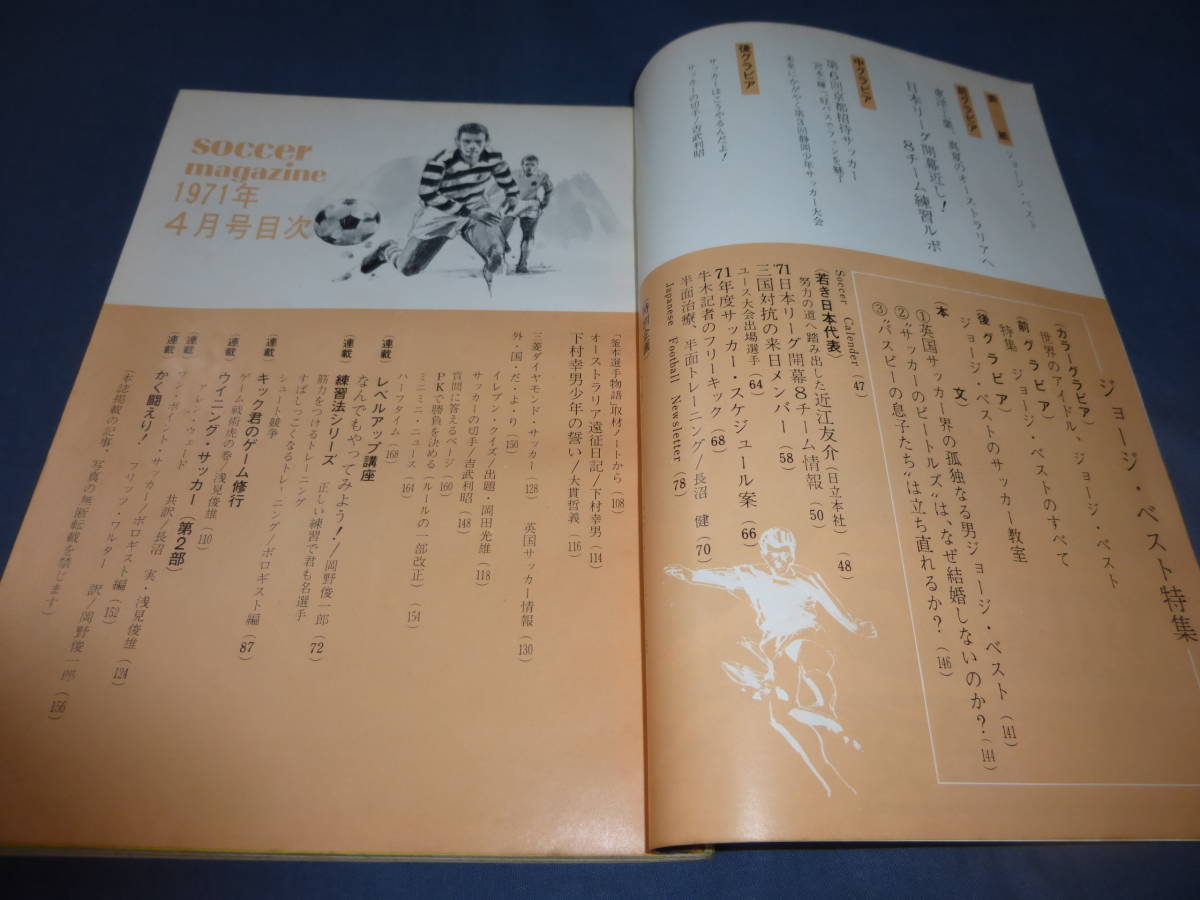 表紙 ジョージ・ベスト
前グラビア
東洋工業、真夏のオーストラリアへ
日本リーグ開幕近し!
8チーム練習ルポ
中グラビア
第6回京都招待サッカー
未来にかがやく第3回静岡少年サッカー大会
後グラビア
サッカーはこうやるんだよ!
サッカーの切手/吉武利昭
ジョージ・ベスト特集
(カラーグラビア)
世界のアイドル、ジョージ・ベスト
(前グラビア)
特集 ジョージ・ベストのすべて
(後グラビア)
ジョージ・ベストのサッカー教室
(本 文)
①英国サッカー界の孤独なる男ジョージ・ベスト (141)
②“サッカーのビートルズ”は、なぜ結婚しないのか? (144)
③“バスビーの息子たち”は立ち直れるか? (146)
Soccer Calender (47)
(若き日本代表)
努力の道へ踏み出した近江友介 (日立本社) (48)
'71日本リーグ開幕8チーム情報 (50)
三国対抗の来日メンバー (58)
ユース大会出場選手 (64)
71年度サッカー・スケジュール案 (66)
牛木記者のフリーキック (68)
半面治療、半面トレーニング/長沼 健 (70)
Japanese Football Newsletter (78)
soccer
magazine
1971年
4月号目次
「釜本選手物語」取材ノートから (108)
オーストラリア遠征日記/下村幸男 (114)
下村幸男少年の誓い/大貫哲義 (116)
三菱ダイヤモンド・サッカー (128) 英国サッカー情報 (130)
外・国・だ・よ・り (150)
イレブン・クイズ/出題・岡田光雄 (118)
サッカーの切手/吉武利昭 (148)
質問に答えるページ (160)
PKで勝負を決める (ルールの一部改正) (154)
ミニミニ・ニュース (164)
ハーフタイム (168)
(連載) レベルアップ講座
なんでもやってみよう!/岡野俊一郎 (72)
(連載) 練習法シリーズ 正しい練習で君も名選手
筋力をつけるトレーニング
すばしっこくなるトレーニング/ボロギスト編
シュート競争
(連載) キック君のゲーム修行
ゲーム戦術虎の巻/浅見俊雄 (110)
(連載) ウイニング・サッカー (第2部)
アレン・ウェード 共訳/長沼 実・浅見俊雄 (124)
ワン・ポイント・サッカー/ボロギスト編 (152)
(連載) かく闘えり!
フリッツ・ワルター 訳/岡野俊一郎 (156)
(本誌掲載の記事、写真の無断転載を禁じます)
(87)